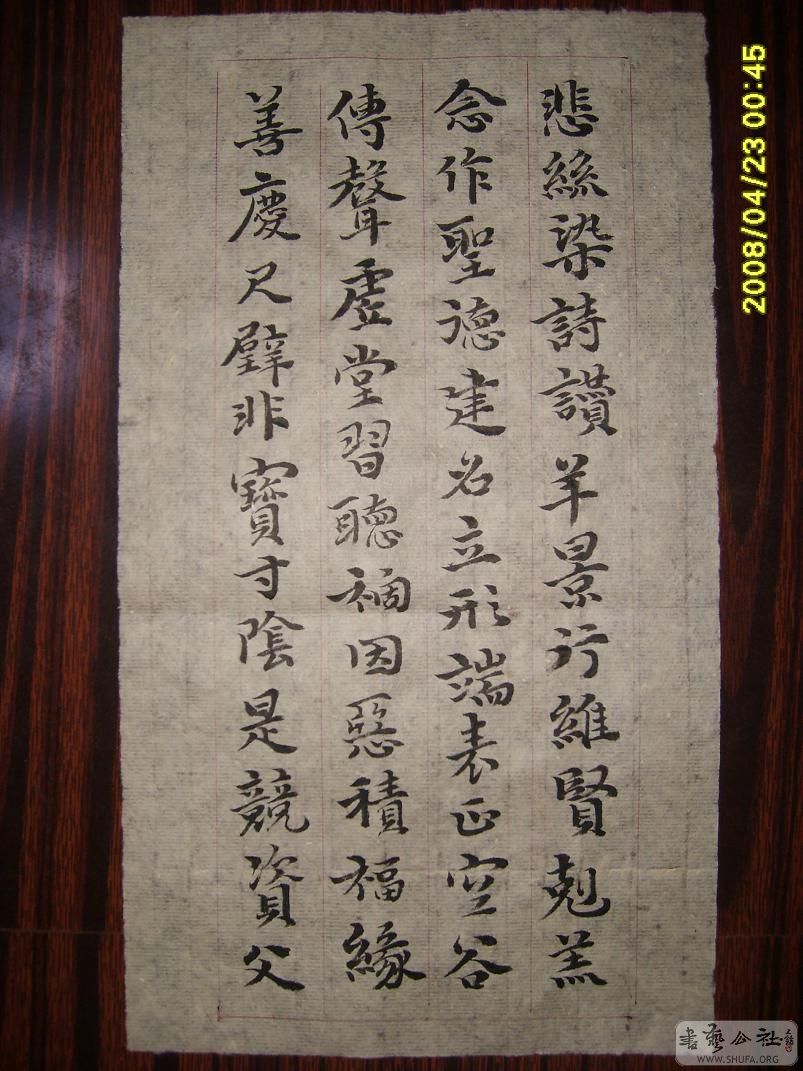 悲絲染詩讚羊景行維賢剋羔
念作聖德建名立形端表正空谷
傳聲虛堂習聽禍因惡積福緣
善慶尺璧非寶寸陰是競資父
2008/04/23 00:45
書藝公社
WWW.SHUFA.ORG